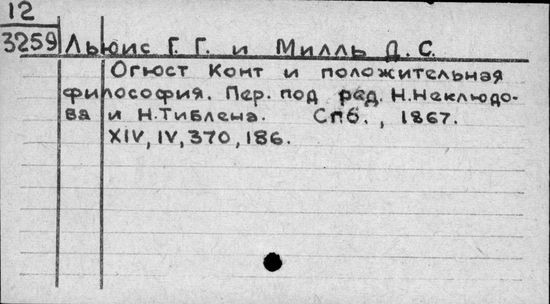 12
3259 Льюис Г. Г. и Милль Д. С.
Огюст Конт и положительная
философия. Пер. под ред. Н.Неклюдо-
ва и Н.Тиблена. Спб., 1867.
XIV, IV, 370, 186.